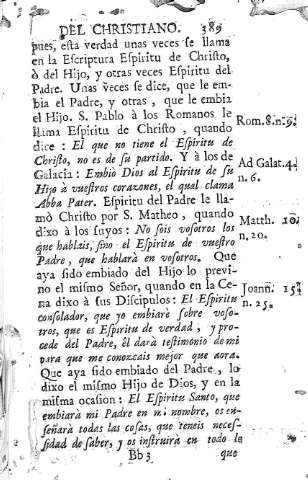 DEL CHRISTIANO. 389
pues, esta verdad unas veces se llama
en la Escriptura Espiritu de Christo,
ò del Hijo, y otras veces Espiritu del
Padre. Unas veces se dice, que le em-
bia el Padre, y otras, que le embia
el Hijo. S. Pablo à los Romanos le
llama Espiritu de Christo, quando
Rom. 8. n. 9.
dice: El que no tiene el Espiritu de
Christo, no es de su partido. Y à los de
Galacia: Embiò Dios al Espiritu de su
Ad Galat. 4.
Hijo à vuestros corazones, el qual clama
n. 6.
Abba Pater. Espiritu del Padre le lla-
mò Christo por S. Matheo, quando
dixo à los suyos: No sois vosotros los
Matth. 10.
que hablais, sino el Espiritu de vuestro
n. 20.
Padre, que hablarà en vosotros. Que
aya sido embiado del Hijo lo previ-
no el mismo Señor, quando en la Ce-
na dixo à sus Discipulos: El Espiritu
Joann. 15.
consolador, que yo embiarè sobre voso-
n. 25.
tros, que es Espiritu de verdad, y pro-
cede del Padre, èl darà testimonio de mi
para que me conozcais mejor que aora.
Que aya sido embiado del Padre, lo
dixo el mismo Hijo de Dios, y en la
misma ocasion: El Espiritu Santo, que
embiarà mi Padre en mi nombre, os en-
señarà todas las cosas, que teneis neces-
sidad de saber, y os instruirà en todo lo
Bb 3 que